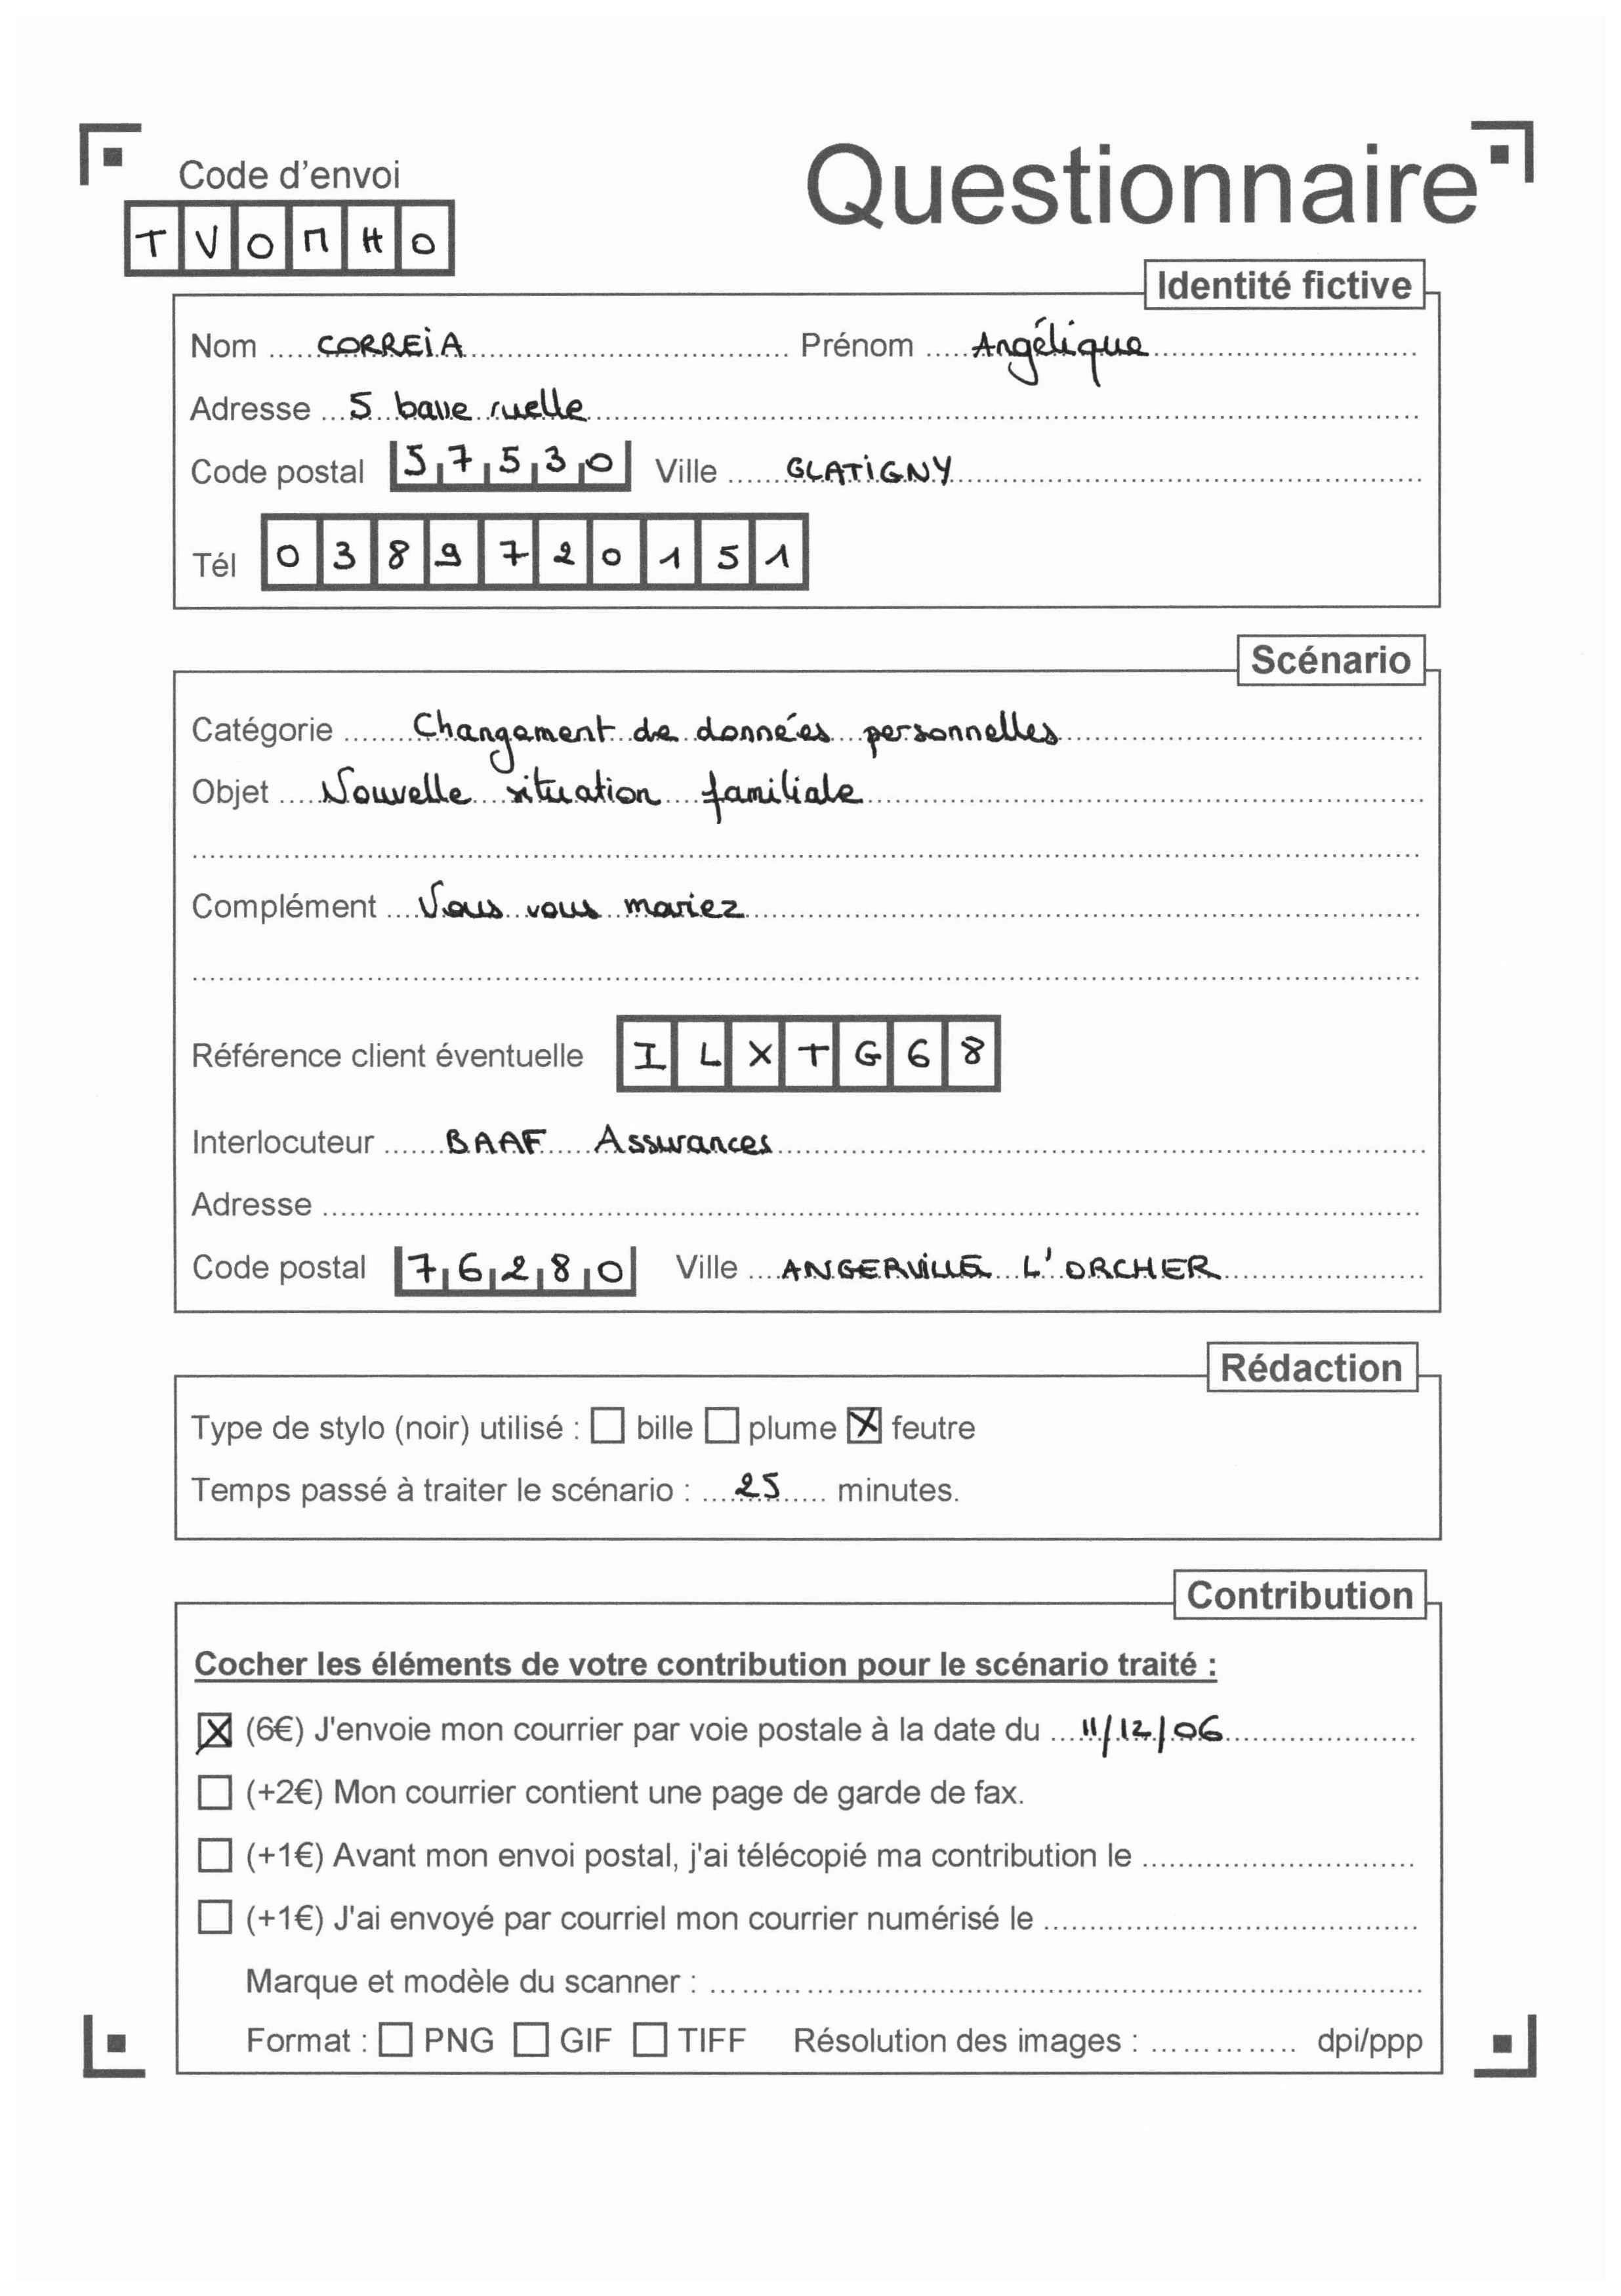 Code d'envoi
Questionnaire
TVOMHO
Identité fictive
Nom ..... CORREIA ..... Prénom ..... Angélique
Adresse ... 5 ... ruelle
Code postal 57530 Ville ..... GLATIGNY
Tél 0389720151
Scénario
Catégorie ..... Changement de données personnelles
Objet ..... Nouvelle situation familiale
Complément ..... Vous vous mariez
Référence client éventuelle ILXTG68
Interlocuteur ..... BAAF Assurances
Adresse .....
Code postal 76280 Ville ..... ANGERVILLE L'ORCHER
Rédaction
Type de stylo (noir) utilisé : ☐ bille ☐ plume ☒ feutre
Temps passé à traiter le scénario : ..... 25 ..... minutes.
Contribution
Cocher les éléments de votre contribution pour le scénario traité :
☒ (6€) J'envoie mon courrier par voie postale à la date du ..... 11/12/06
☐ (+2€) Mon courrier contient une page de garde de fax.
☐ (+1€) Avant mon envoi postal, j'ai télécopié ma contribution le .....
☐ (+1€) J'ai envoyé par courriel mon courrier numérisé le .....
Marque et modèle du scanner : .....
Format : ☐ PNG ☐ GIF ☐ TIFF Résolution des images : ..... dpi/ppp